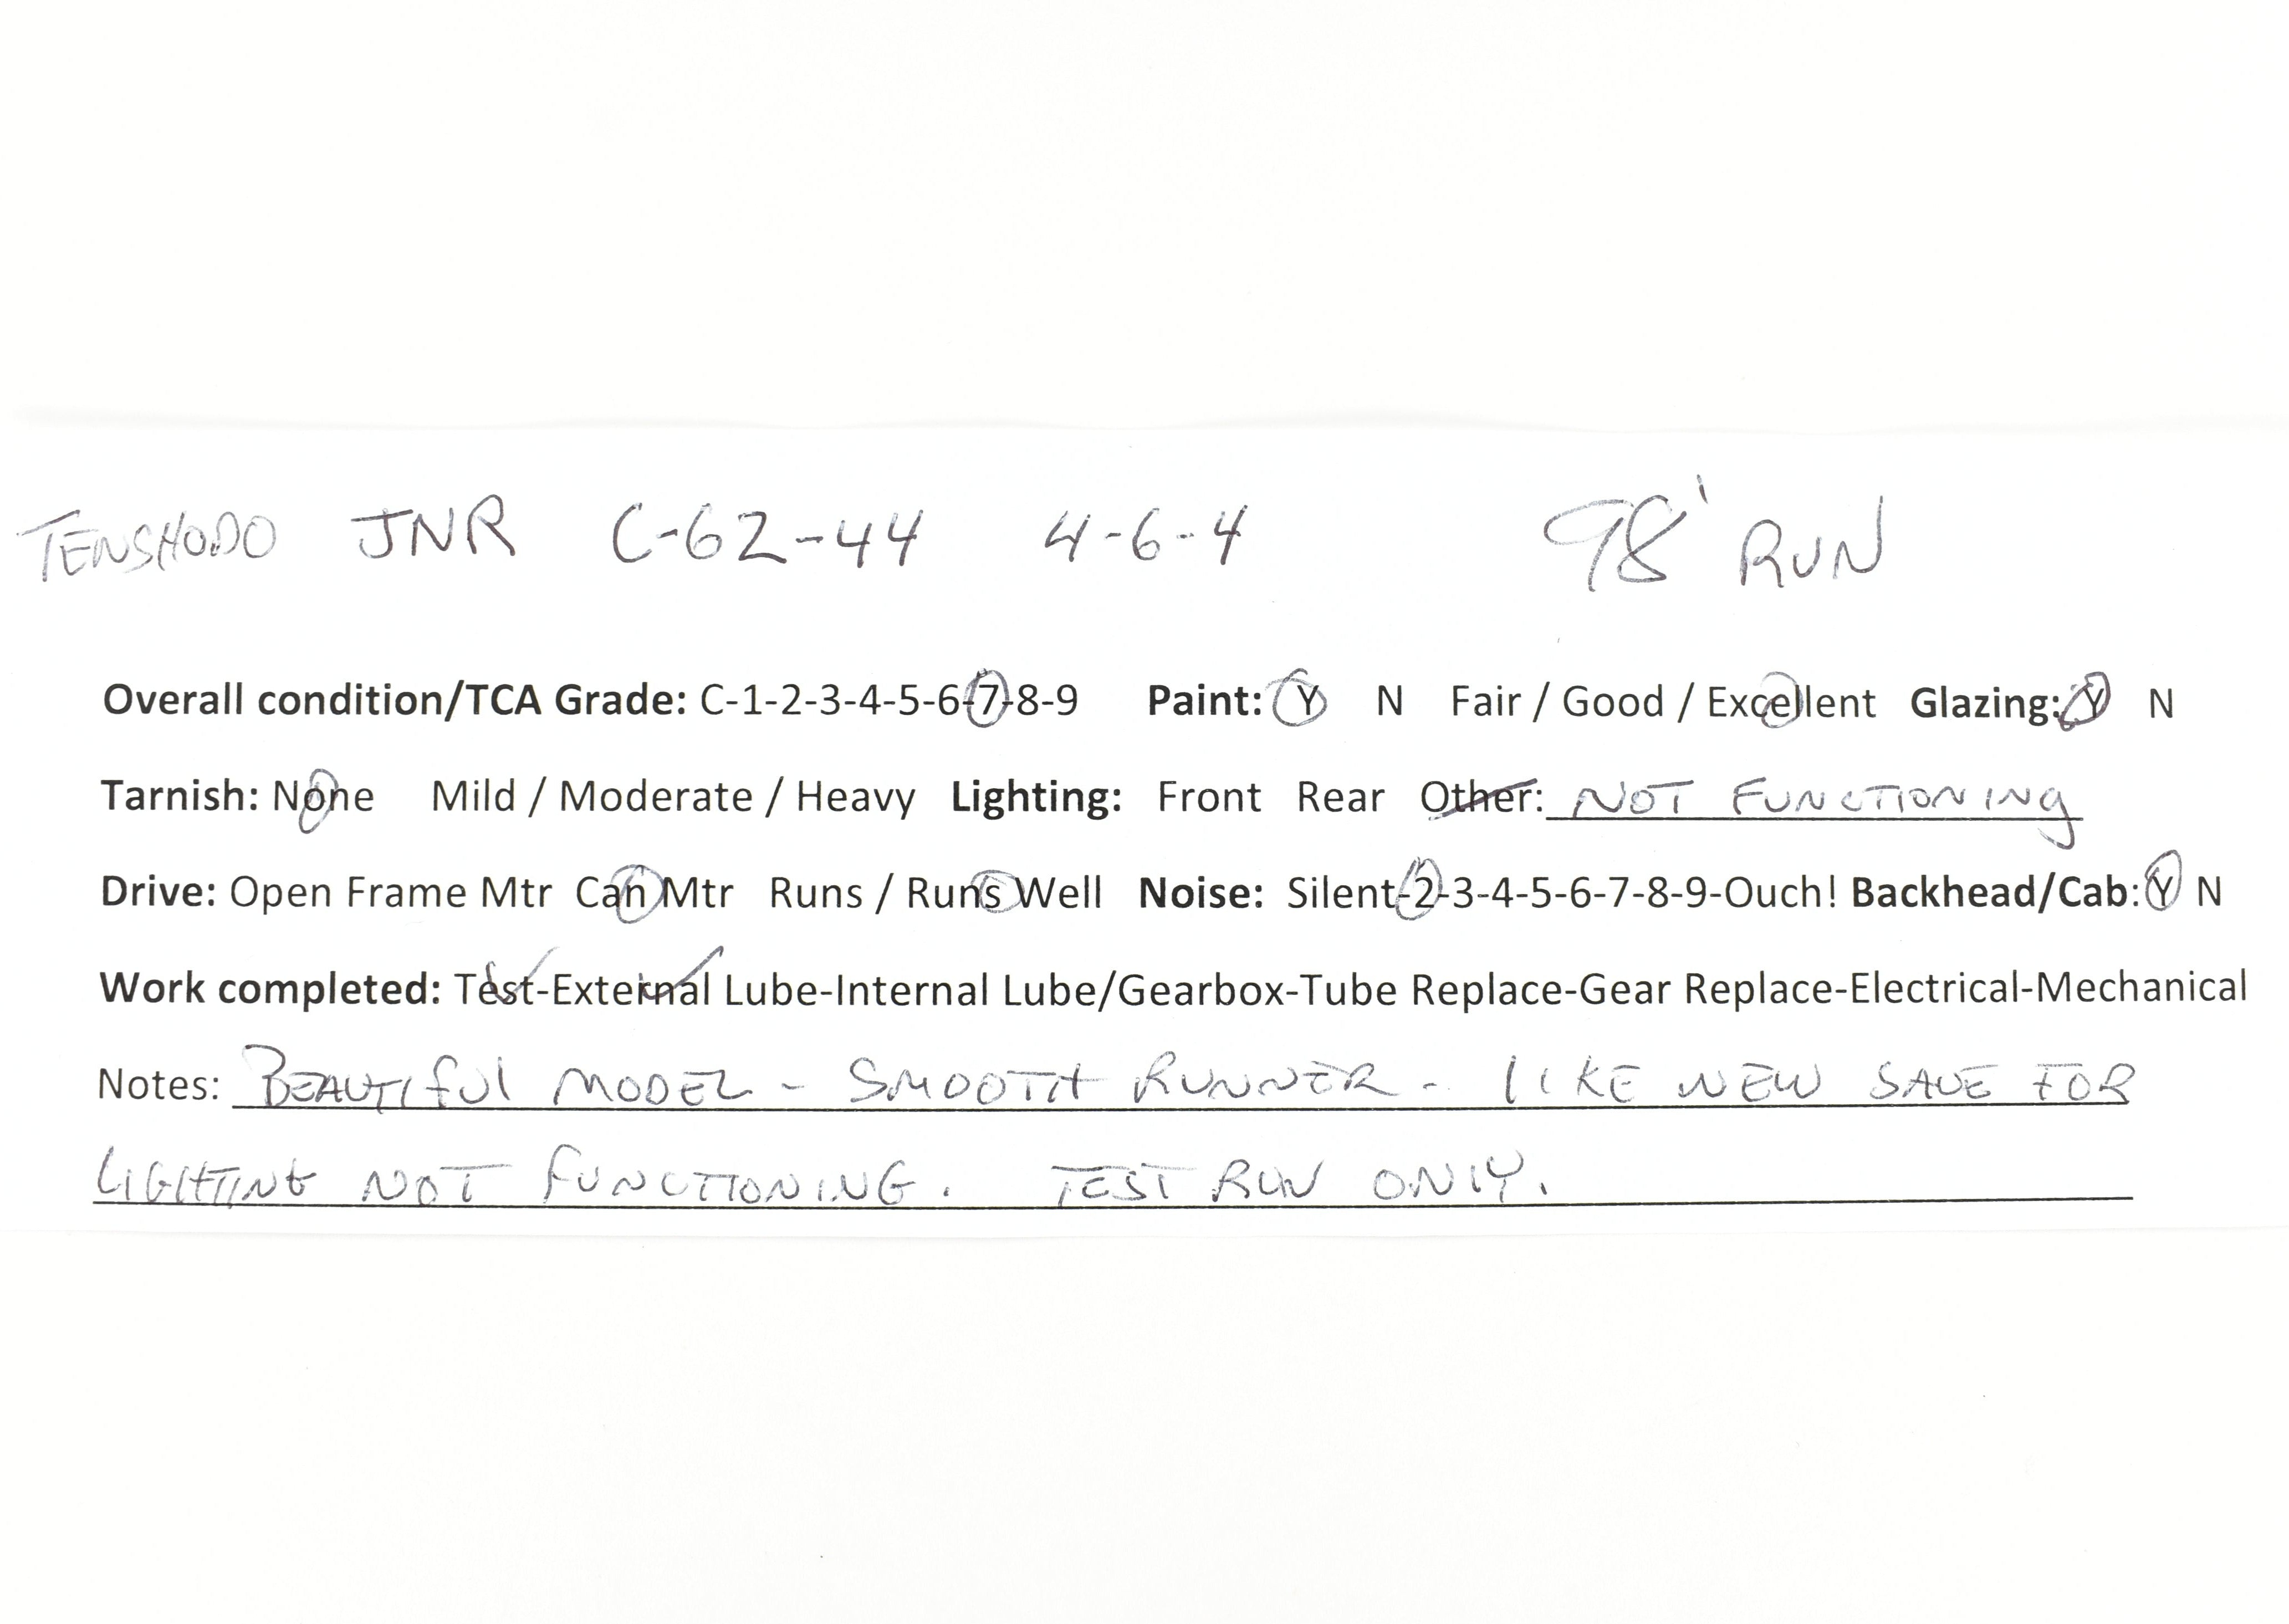 TENSHODO JNR C-62-44 4-6-4 98' RUN
Overall condition/TCA Grade: C-1-2-3-4-5-6-7-8-9 Paint: Y N Fair / Good / Excellent Glazing: Y N
Tarnish: None Mild / Moderate / Heavy Lighting: Front Rear Other: NOT FUNCTIONING
Drive: Open Frame Mtr Can Mtr Runs / Runs Well Noise: Silent-2-3-4-5-6-7-8-9-Ouch! Backhead/Cab: Y N
Work completed: Test-External Lube-Internal Lube/Gearbox-Tube Replace-Gear Replace-Electrical-Mechanical
Notes: BEAUTIFUL MODEL - SMOOTH RUNNER - LIKE NEW SAVE FOR
LIGHTING NOT FUNCTIONING. TEST RUN ONLY.